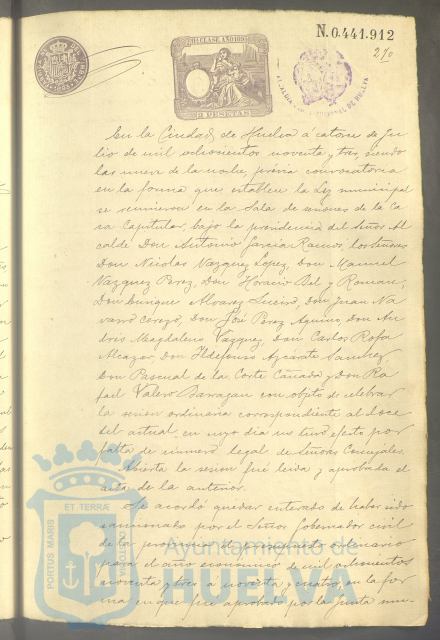 N.0.441.912
11ª CLASE. AÑO 1893
2 PESETAS
En la Ciudad de Huelva á catorce de Ju-
lio de mil ochocientos noventa y tres, siendo
las nueve de la noche, previa convocatoria
en la forma que establece la Ley municipal
se reunieron en la Sala de sesiones de la Ca
sa Capitular, bajo la presidencia del Señor Al
calde Don Antonio Garcia Ramos, los Señores
Don Nicolas Vazquez Lopez, Don Manuel
Vazquez Perez, Don Horacio Bel y Roman,
Don Enrique Alvarez Lucero, Don Juan Na
varro Cerezo, Don José Perez Aquino, Don An
drés Magdaleno Vazquez, Don Carlos Rofa
Alcazar, Don Ildefonso Azcárate Sanchez
Don Pascual de la Corte Cañada y Don Ra
fael Valero Barragan con objeto de celebrar
la sesion ordinaria correspondiente al doce
del actual en cuyo dia no tuvo efecto por
falta de número legal de Señores Concejales.
Abierta la sesion fué leida y aprobada el
acta de la anterior.
Se acordó quedar enterado de haber sido
sancionado por el Señor Gobernador civil
de la provincia el presupuesto ordinario
para el año economico de mil ochocientos
noventa y tres á noventa y cuatro, en la for
ma en que fué aprobado por la Junta mu-
PORTUS MARIS
ET TERRÆ
CUSTODIA
Ayuntamiento de
HUELVA